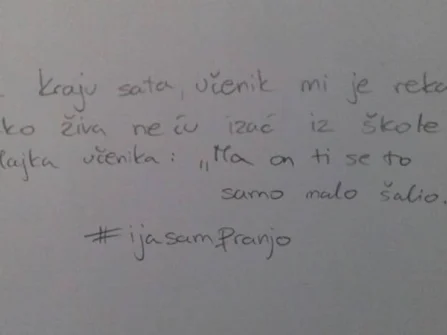 kraju sata, učenik mi je reka
ko živa ne ću izać iz škole
ajka učenika: „Ma on ti se to
samo malo šalio.
#ijasamPranjo